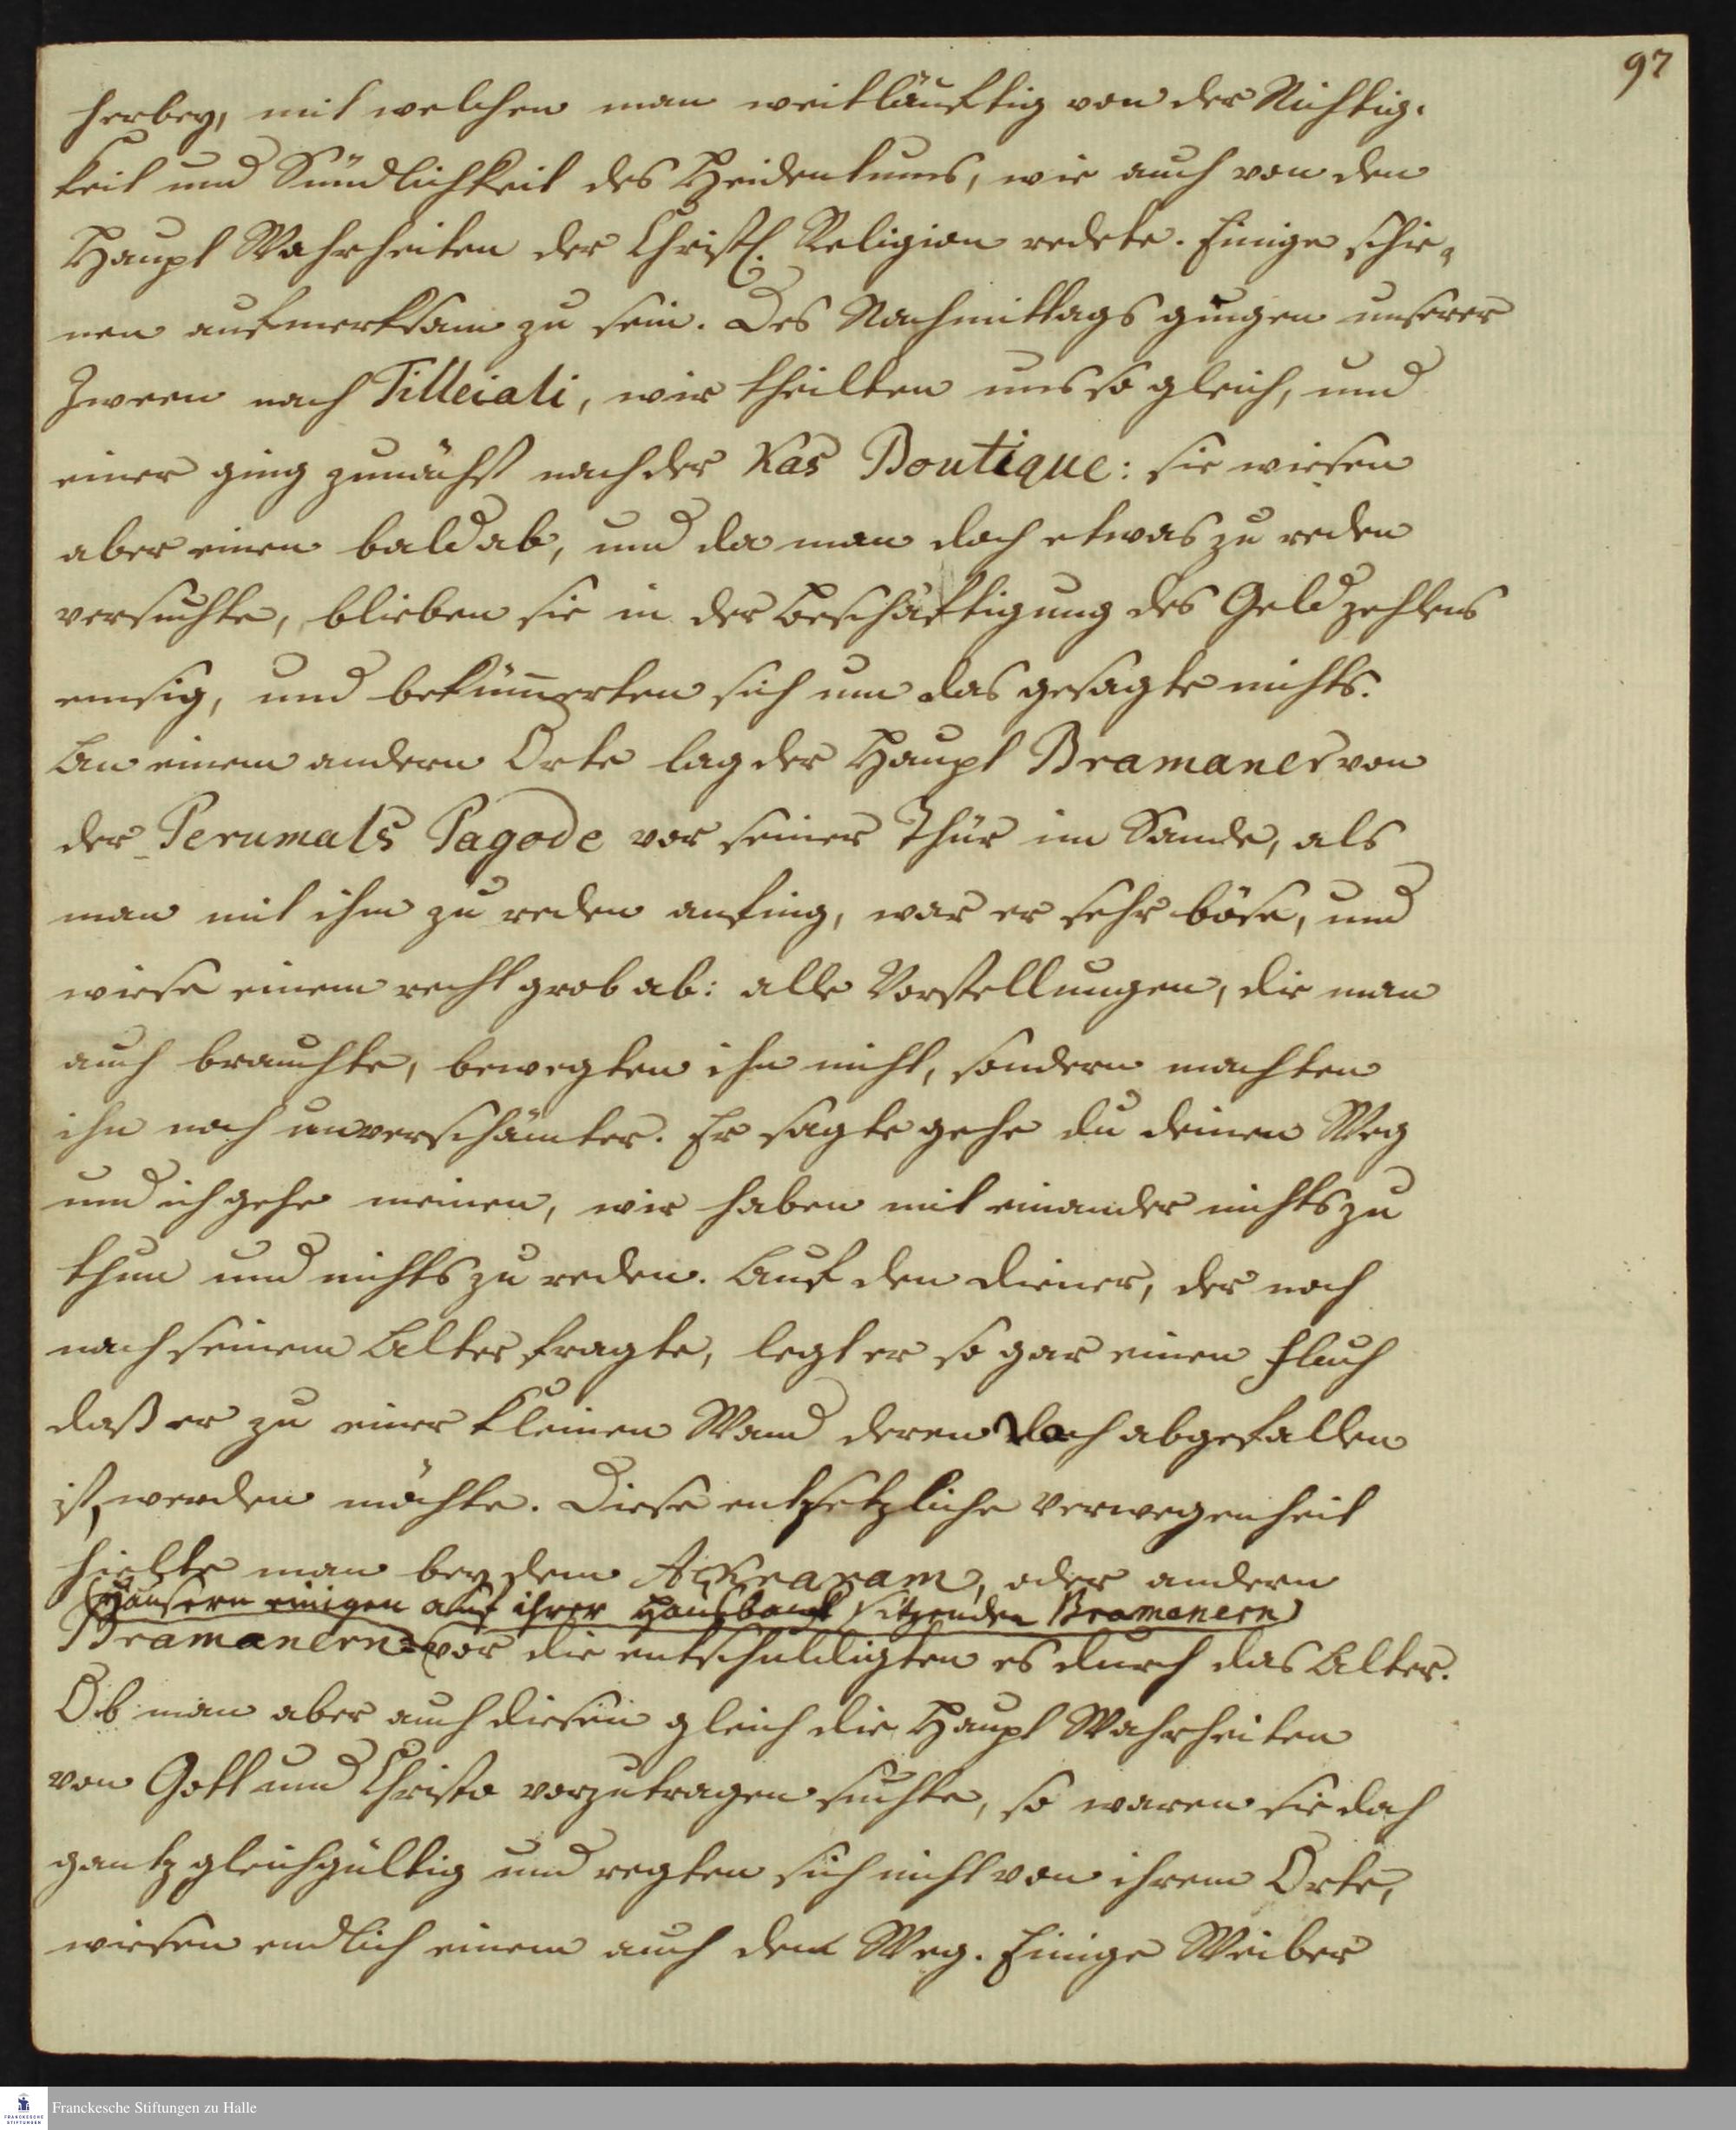 97
herbey, mit welchen man weitläuftig von der Nichtig-
keit und Sündlichkeit des Heidentums, wie auch von den
Haupt Wahrheiten der Christl. Religion redete. Einige schie-
nen aufmerksam zu sein. Des Nachmittags gingen unserer
Zween nach Tilleiali, wir theilten uns so gleich, und
einer ging zunächst nach der Kas Boutique: sie wiesen
aber einen bald ab, und da man doch etwas zu reden
versuchte, blieben sie in der Beschäftigung des Geld zehlens
emsig, und bekümerten sich um das gesagte nichts.
An einem andern Orte lag der Haupt Bramaner von
der Perumals Pagode vor seiner Thür im Sande, als
man mit ihm zu reden anfing, war er sehr böse, und
wiese einem recht grob ab: alle Vorstellungen, die man
auch brauchte, bewegten ihn nicht, sondern machten
ihn noch unverschämter. Er sagte gehe du deinen Weg
und ich gehe meinen, wir haben mit einander nichts zu
thun und nichts zu reden. Auf den Diener, der noch
nach seinem Alter fragte, legt er so gar einen Fluch
daß er zu einer kleinen Wand deren Dach abgefallen
ist, werden möchte. Diese entsetzliche Verwegenheit
hielte man bey dem Ackraram, oder andern
Häusern einigen auf ihrer Hausbank sitzenden Bramanern
Bramanern vor die entschuldigten es durch das Alter.
Ob man aber auch diesen gleich die Haupt Wahrheiten
von Gott und Christo vorzutragen suchte, so waren sie doch
gantz gleichgültig und regten sich nicht von ihrem Orte,
wiesen endlich einem auch den Weg. Einige Weiber
FRANCKESCHE STIFTUNGEN
Franckesche Stiftungen zu Halle